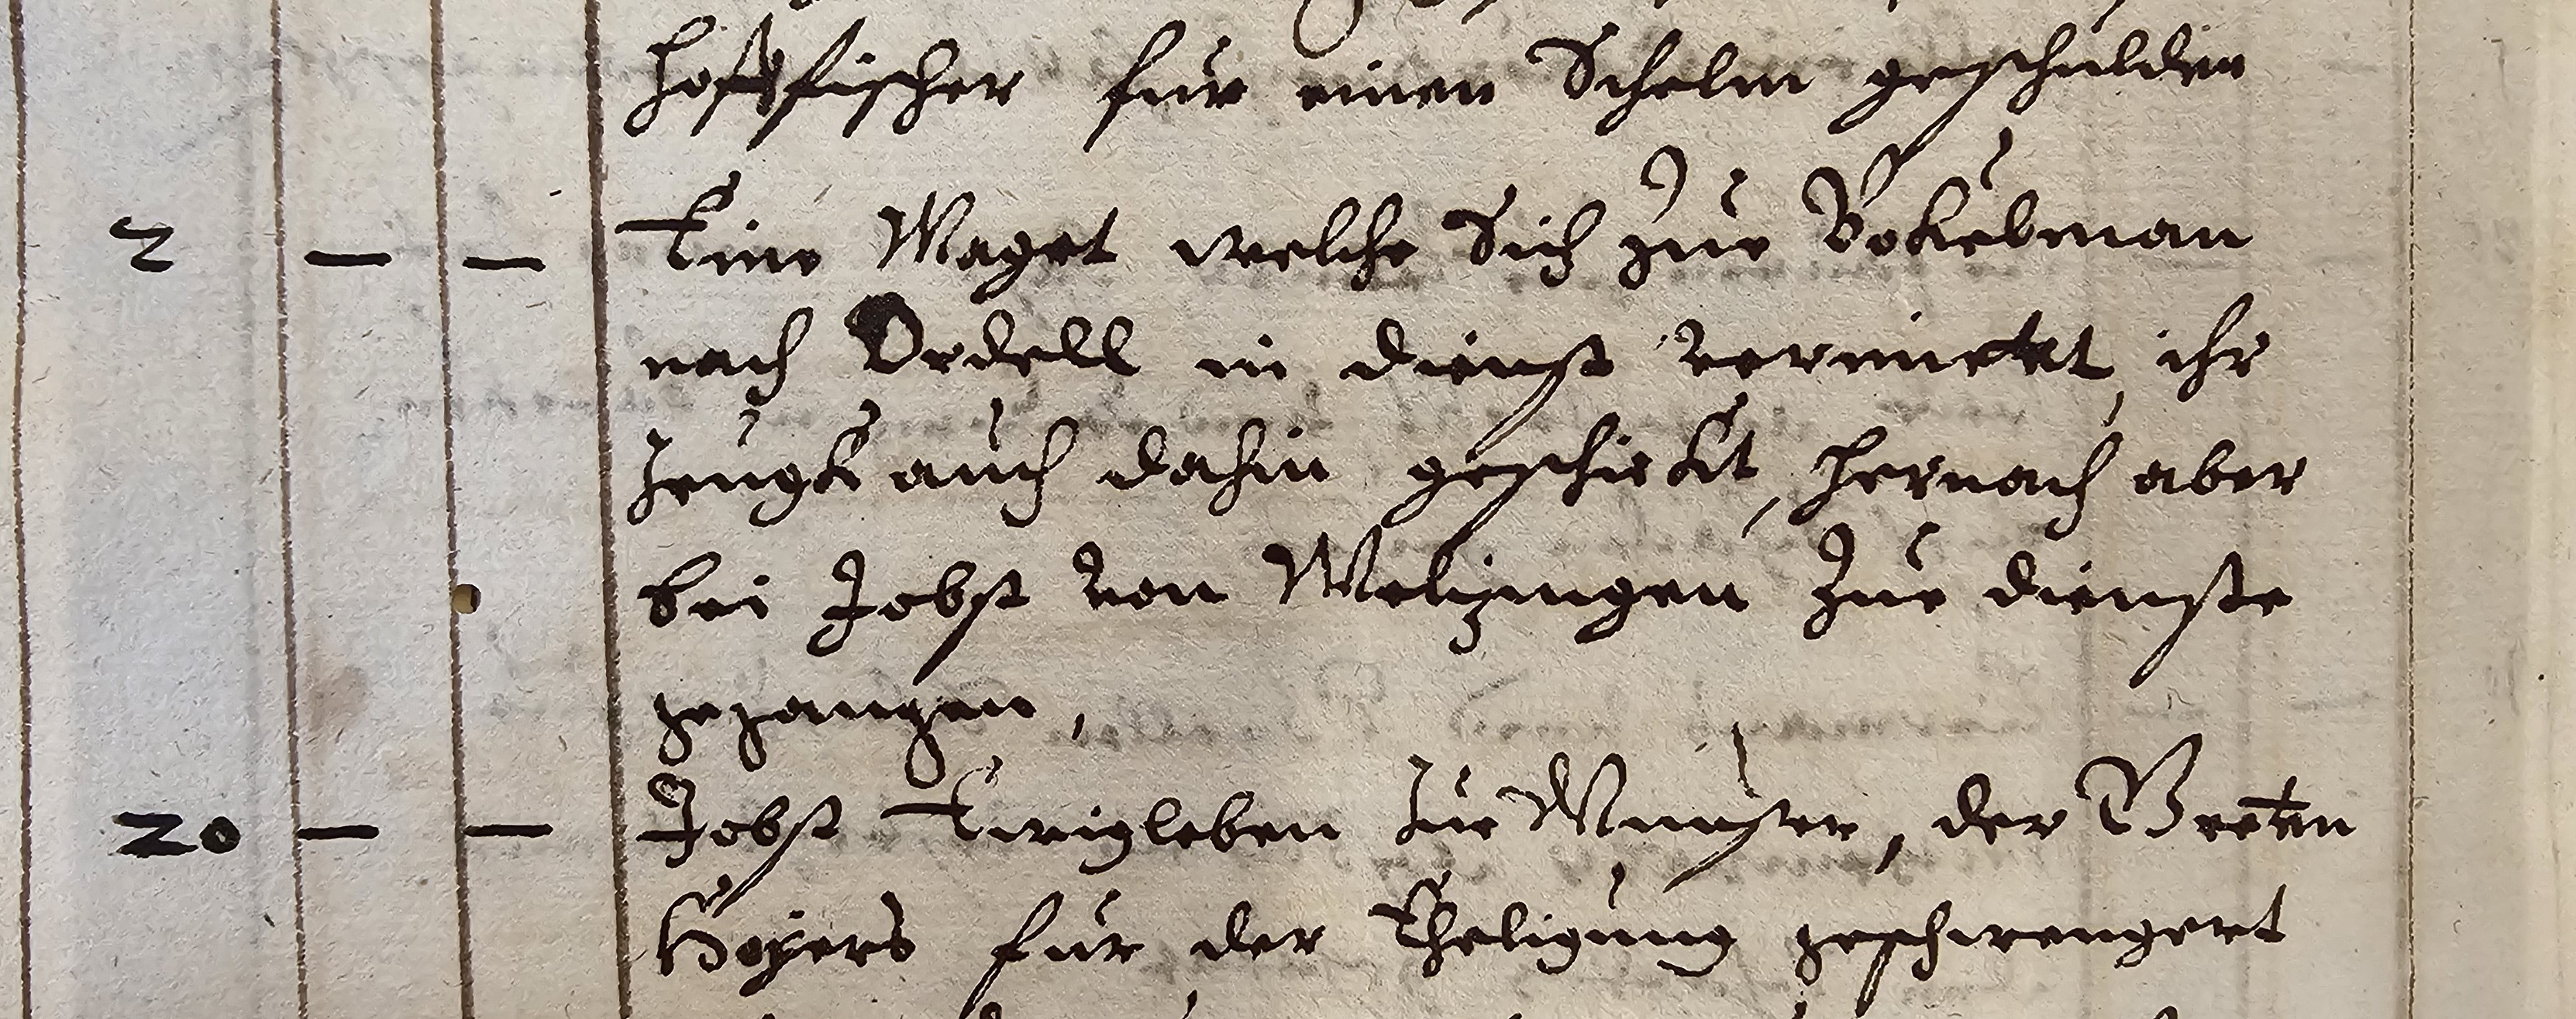 Hoffischer fur einen Schelm geschulden
2 — — Eine Maget welche Sich zue Bokelman
nach Ordell in dienst vermietet, ihr
Zeugk auch dahin geschickt, hernach aber
bei Jobst von Weltzingen Zue dienste
gegangen,
20 — — Jobst Zue Munster, der
Hoyers fur der Eheligung geschwengert